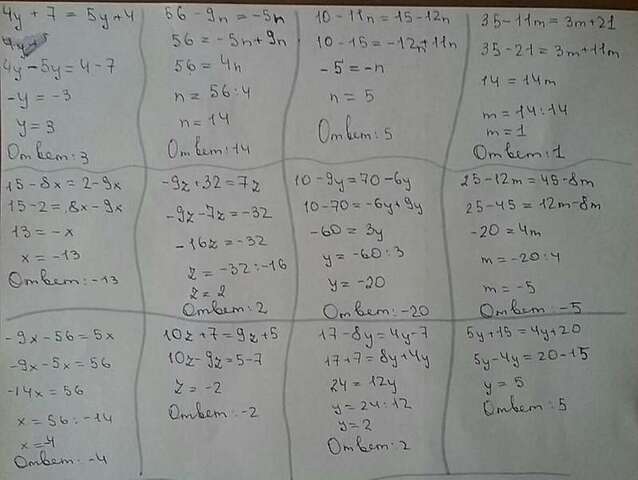 4y + 7 = 5y + 4
4y - 5y = 4 - 7
-y = -3
y = 3
Ответ: 3
56 - 9n = -5n
56 = -5n + 9n
56 = 4n
n = 56 : 4
n = 14
Ответ: 14
10 - 11n = 15 - 12n
10 - 15 = -12n + 11n
-5 = -n
n = 5
Ответ: 5
35 - 11m = 3m + 21
35 - 21 = 3m + 11m
14 = 14m
m = 14 : 14
m = 1
Ответ: 1
15 - 8x = 2 - 9x
15 - 2 = 8x - 9x
13 = -x
x = -13
Ответ: -13
-9z + 32 = 7z
-9z - 7z = -32
-16z = -32
z = -32 : -16
z = 2
Ответ: 2
10 - 9y = 70 - 6y
10 - 70 = -6y + 9y
-60 = 3y
y = -60 : 3
y = -20
Ответ: -20
25 - 12m = 45 - 8m
25 - 45 = 12m - 8m
-20 = 4m
m = -20 : 4
m = -5
Ответ: -5
-9x - 56 = 5x
-9x - 5x = 56
-14x = 56
x = 56 : -14
x = -4
Ответ: -4
10z + 7 = 9z + 5
10z - 9z = 5 - 7
z = -2
Ответ: -2
17 - 8y = 4y - 7
17 + 7 = 8y + 4y
24 = 12y
y = 24 : 12
y = 2
Ответ: 2
5y + 15 = 4y + 20
5y - 4y = 20 - 15
y = 5
Ответ: 5